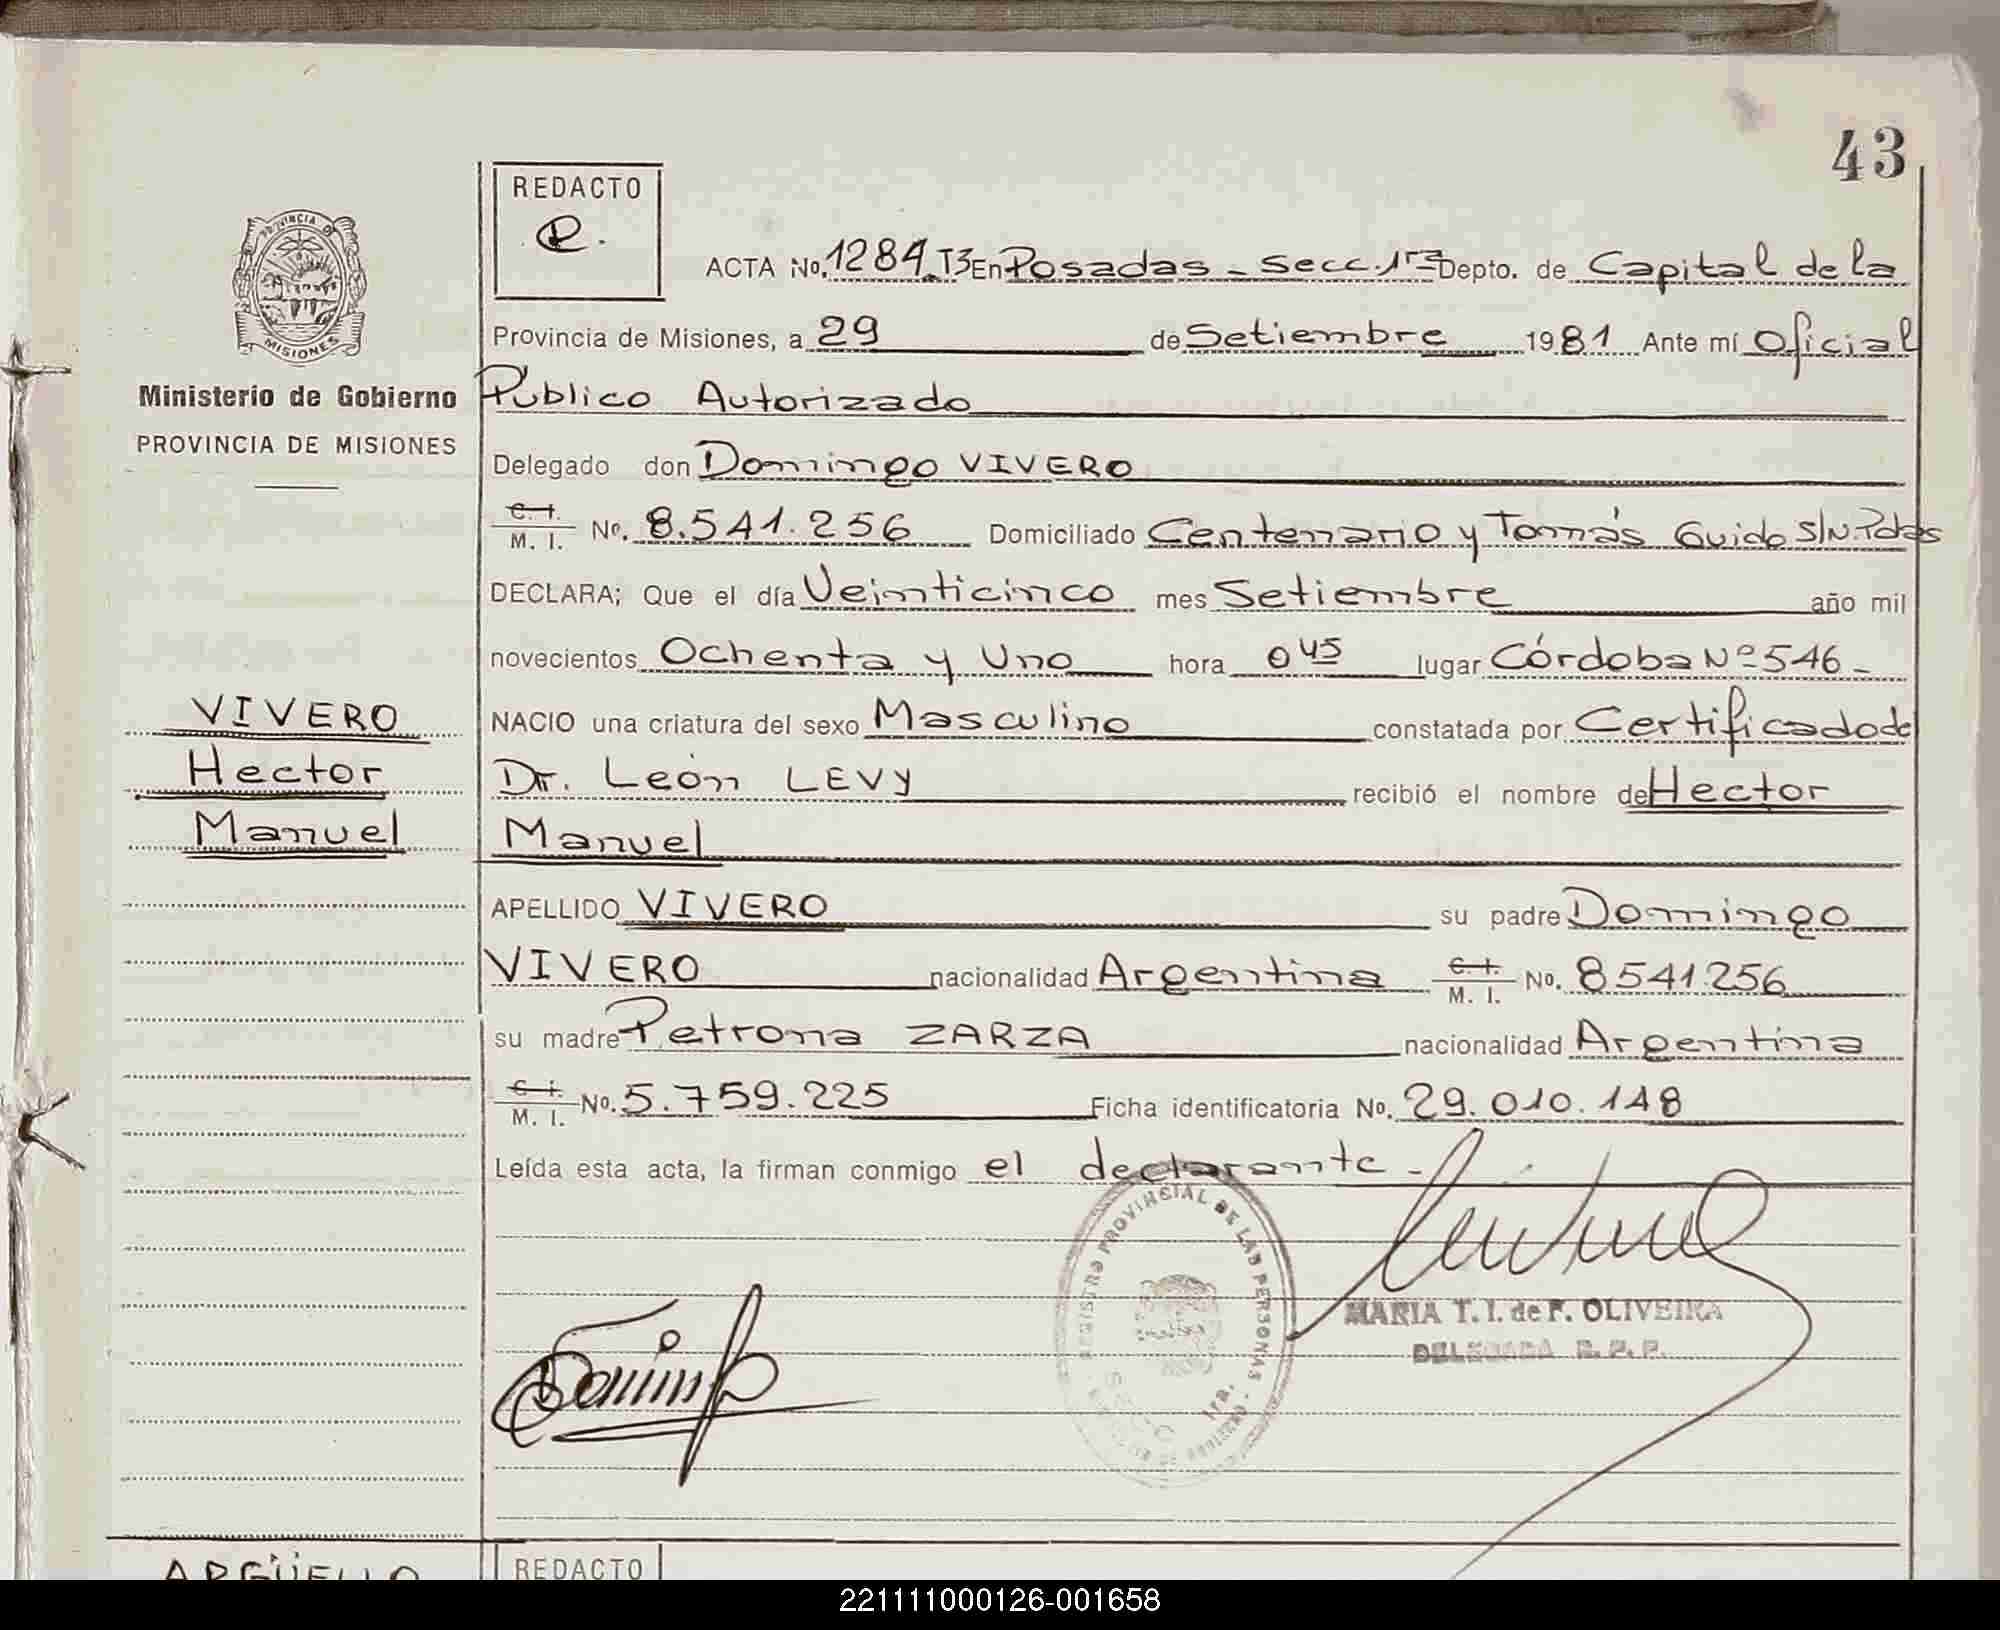 43
REDACTO
e.
PROVINCIA DE
MISIONES
Ministerio de Gobierno
PROVINCIA DE MISIONES
VIVERO
Hector
Manuel
ACTA No. 1284 T3 En Posadas - Secc. 1ra Depto. de Capital de la
Provincia de Misiones, a 29 de Setiembre 1981 Ante mí Oficial
Público Autorizado
Delegado don Domingo VIVERO
C. I. M. I. No. 8.541.256 Domiciliado Centenario y Tomás Guido S/N. Pdas
DECLARA; Que el día Veinticinco mes Setiembre año mil
novecientos Ochenta y Uno hora 0 45 lugar Córdoba Nº 546 -
NACIO una criatura del sexo Masculino constatada por Certificado de
Dr. León LEVY recibió el nombre de Hector
Manuel
APELLIDO VIVERO su padre Domingo
VIVERO nacionalidad Argentina C. I. M. I. No. 8541.256
su madre Petrona ZARZA nacionalidad Argentina
C. I. M. I. No. 5.759.225 Ficha identificatoria No. 29.010.148
Leída esta acta, la firman conmigo el declarante -
REGISTRO PROVINCIAL DE LAS PERSONAS
1ra.
MARIA T. I. de F. OLIVEIRA
DELEGADA R. P. P.
ARGÜELLO
REDACTO
221111000126-001658